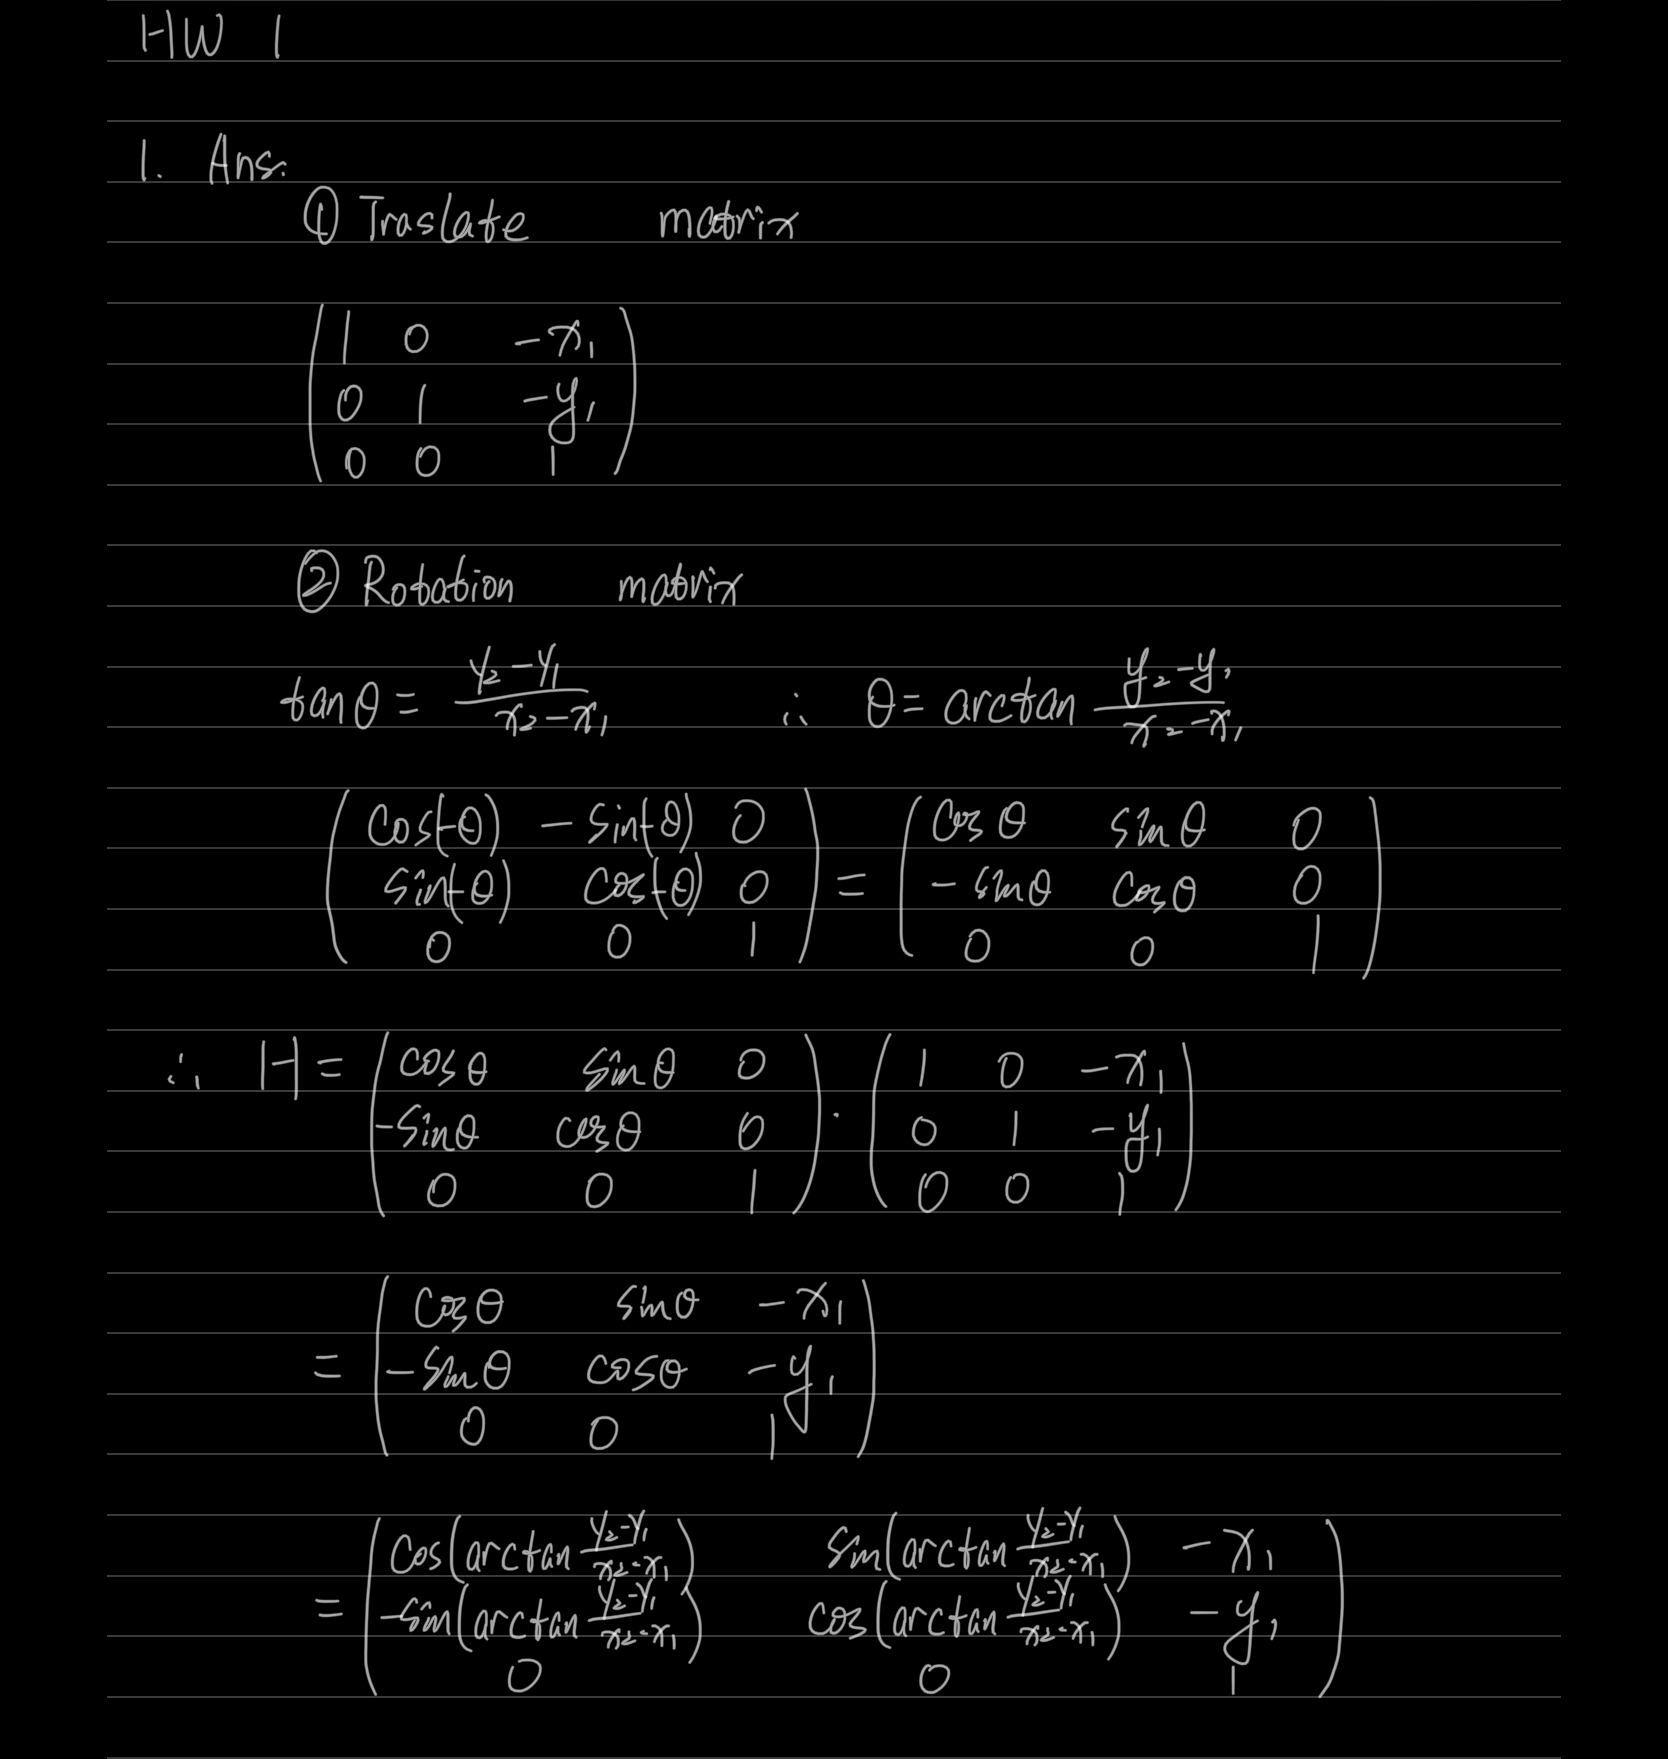 HW 1
1. Ans:
① Traslate matrix
( 1 0 -x₁ )
( 0 1 -y₁ )
( 0 0 1 )
② Rotation matrix
tanθ = (y₂-y₁)/(x₂-x₁) ∴ θ = arctan (y₂-y₁)/(x₂-x₁)
( cos(-θ) -sin(-θ) 0 ) = ( cosθ sinθ 0 )
( sin(-θ) cos(-θ) 0 ) ( -sinθ cosθ 0 )
( 0 0 1 ) ( 0 0 1 )
∴ H = ( cosθ sinθ 0 ) · ( 1 0 -x₁ )
( -sinθ cosθ 0 ) ( 0 1 -y₁ )
( 0 0 1 ) ( 0 0 1 )
= ( cosθ sinθ -x₁ )
( -sinθ cosθ -y₁ )
( 0 0 1 )
= ( cos(arctan (y₂-y₁)/(x₂-x₁)) sin(arctan (y₂-y₁)/(x₂-x₁)) -x₁ )
( -sin(arctan (y₂-y₁)/(x₂-x₁)) cos(arctan (y₂-y₁)/(x₂-x₁)) -y₁ )
( 0 0 1 )